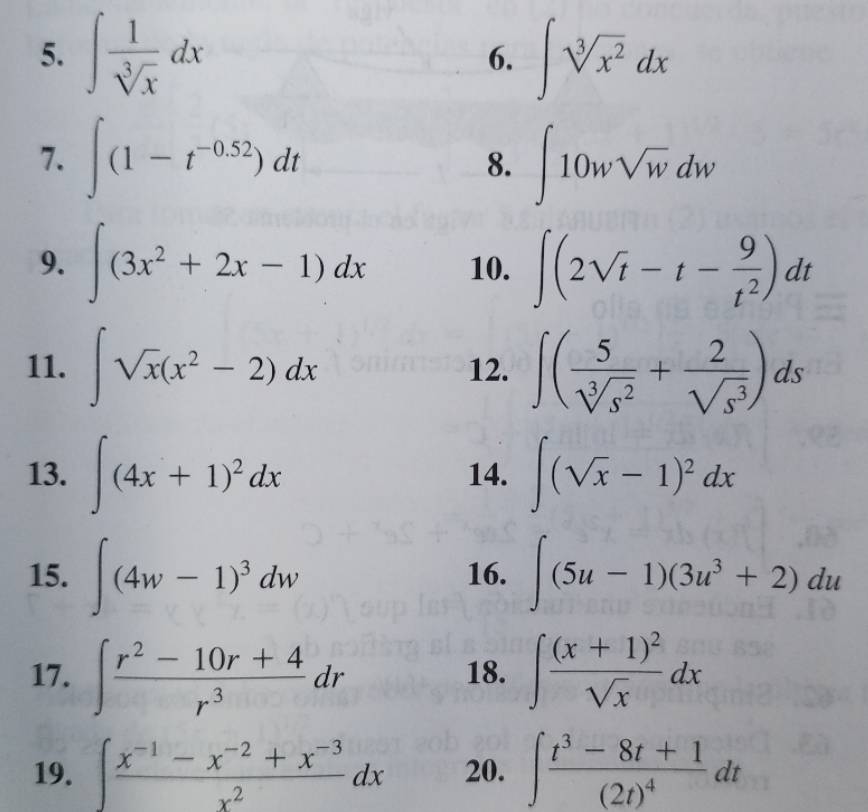 5. ∫ 1/∛x dx 6. ∫ ∛x² dx
7. ∫ (1 − t⁻⁰·⁵²) dt 8. ∫ 10w√w dw
9. ∫ (3x² + 2x − 1) dx 10. ∫ (2√t − t − 9/t²) dt
11. ∫ √x(x² − 2) dx 12. ∫ (5/∛s² + 2/√s³) ds
13. ∫ (4x + 1)² dx 14. ∫ (√x − 1)² dx
15. ∫ (4w − 1)³ dw 16. ∫ (5u − 1)(3u³ + 2) du
17. ∫ (r² − 10r + 4)/r³ dr 18. ∫ (x + 1)²/√x dx
19. ∫ (x⁻¹ − x⁻² + x⁻³)/x² dx 20. ∫ (t³ − 8t + 1)/(2t)⁴ dt